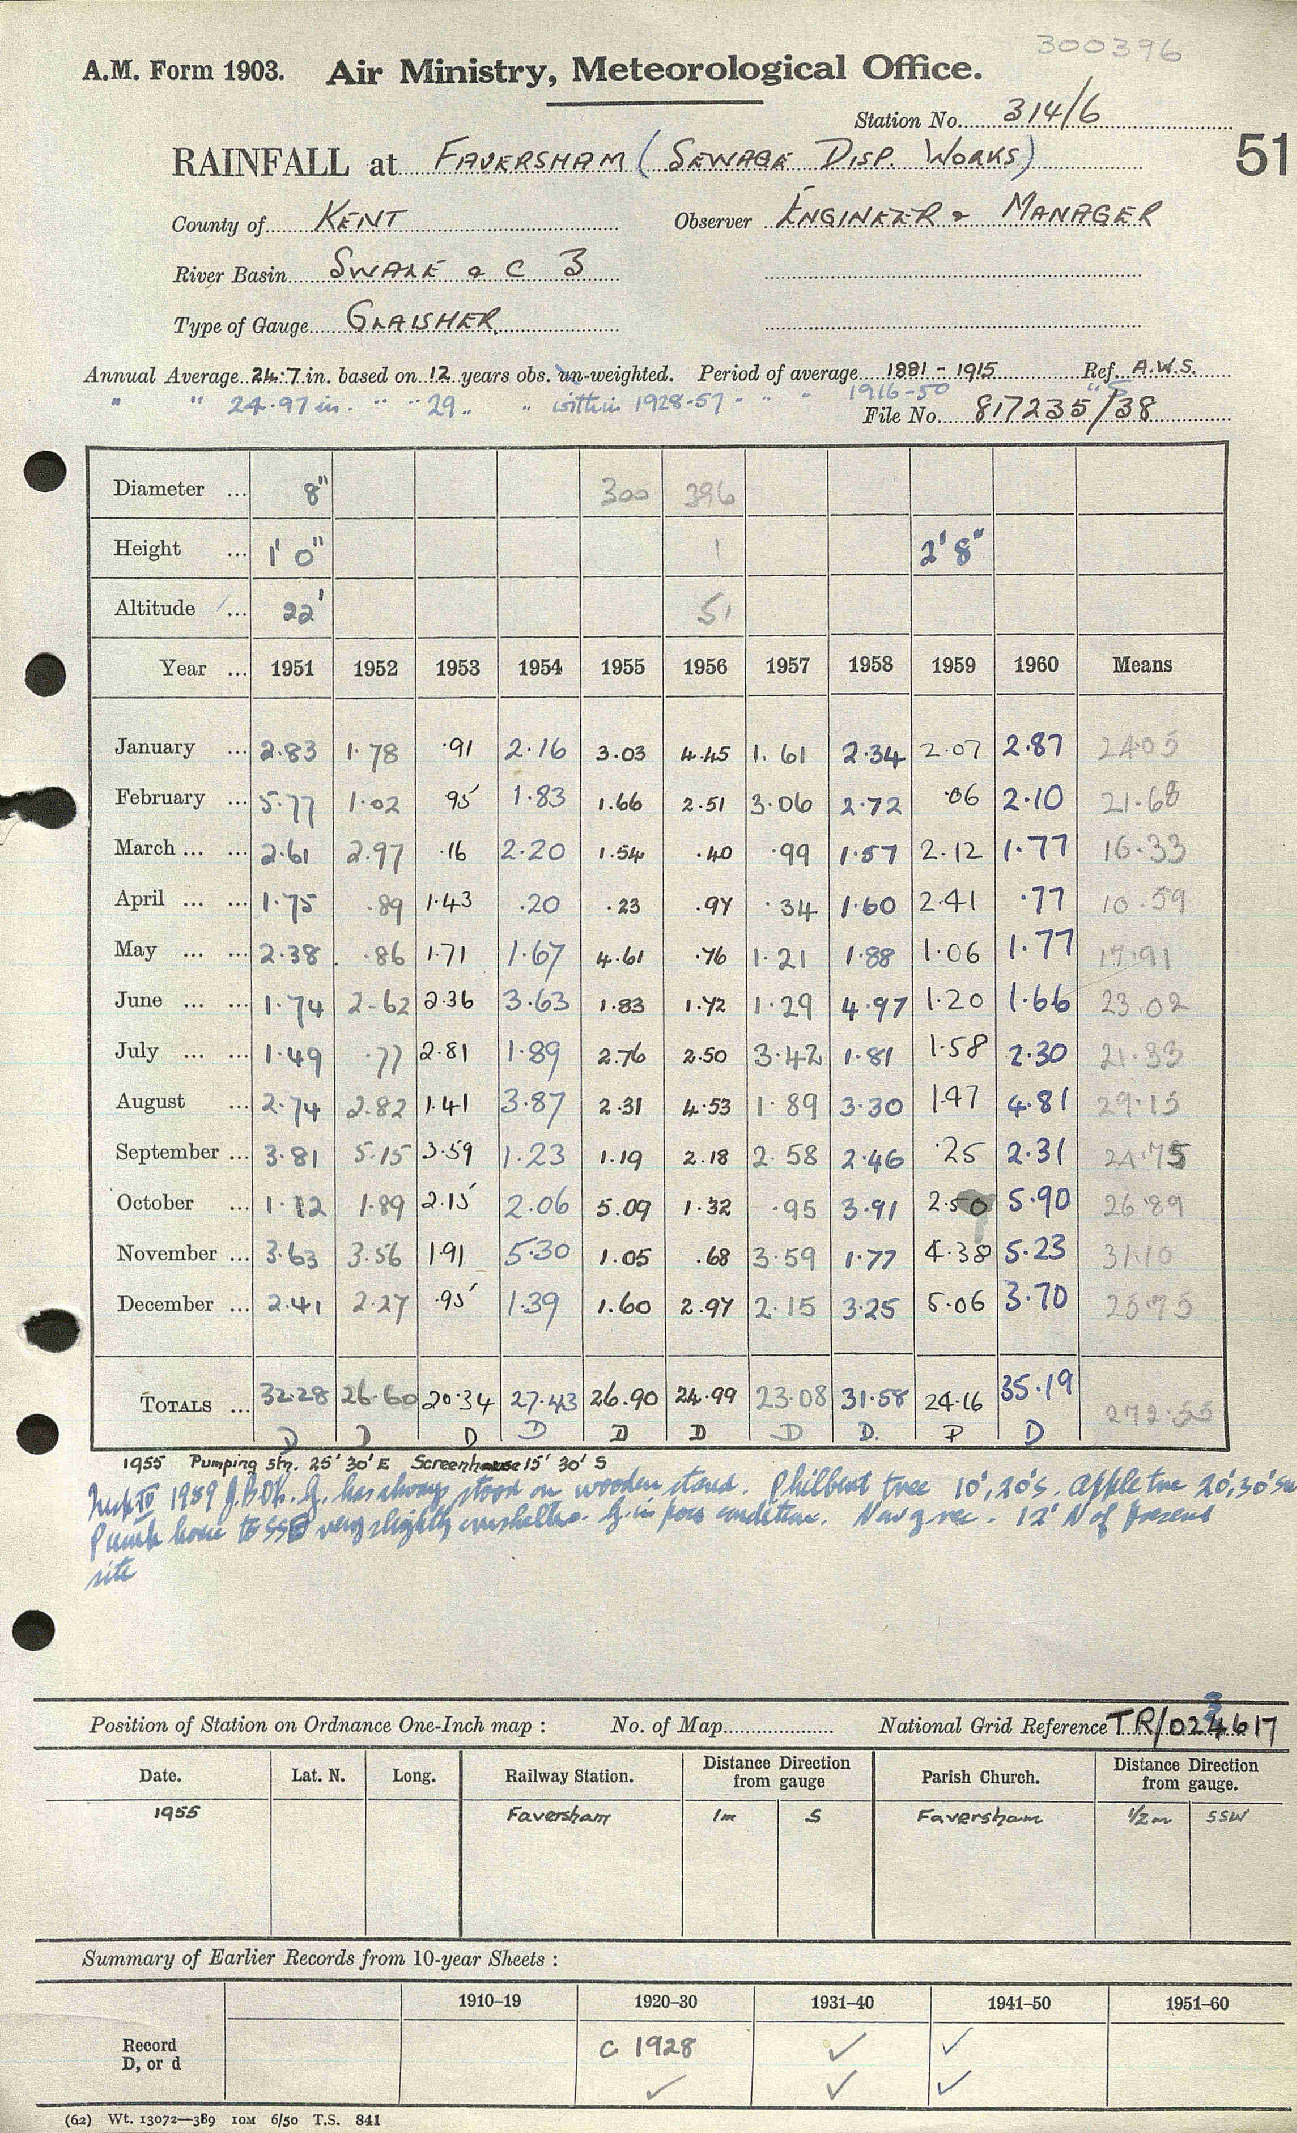 300396
A.M. Form 1903. Air Ministry, Meteorological Office.
Station No. 314/6
RAINFALL at FAVERSHAM (SEWAGE DISP. WORKS)
51
County of KENT Observer ENGINEER & MANAGER
River Basin SWALE & C 3
Type of Gauge GLAISHER
Annual Average 24.7 in. based on 12 years obs. un-weighted. Period of average 1881 - 1915 Ref. A.W.S.
" " 24.97 in. " " 29 " " within 1928-57 " " " 1916-50 " S
File No. 817235/38
Diameter ... 8" 300 396
Height ... 1' 0" 1 2' 8"
Altitude ... 22' 51
Year ... 1951 1952 1953 1954 1955 1956 1957 1958 1959 1960 Means
January ... 2.83 1.78 .91 2.16 3.03 4.45 1.61 2.34 2.07 2.87 24.05
February ... 5.77 1.02 .95 1.83 1.66 2.51 3.06 2.72 .06 2.10 21.68
March ... ... 2.61 2.97 .16 2.20 1.54 .40 .99 1.57 2.12 1.77 16.33
April ... ... 1.75 .89 1.43 .20 .23 .97 .34 1.60 2.41 .77 10.59
May ... ... 2.38 .86 1.71 1.67 4.61 .76 1.21 1.88 1.06 1.77 17.91
June ... ... 1.74 2.62 2.36 3.63 1.83 1.72 1.29 4.97 1.20 1.66 23.02
July ... ... 1.49 .77 2.81 1.89 2.76 2.50 3.42 1.81 1.58 2.30 21.33
August ... 2.74 2.82 1.41 3.87 2.31 4.53 1.89 3.30 1.47 4.81 29.15
September ... 3.81 5.15 3.59 1.23 1.19 2.18 2.58 2.46 .25 2.31 24.75
October ... 1.12 1.89 2.15 2.06 5.09 1.32 .95 3.91 2.50 5.90 26.89
November ... 3.63 3.56 1.91 5.30 1.05 .68 3.59 1.77 4.38 5.23 31.10
December ... 2.41 2.27 .95 1.39 1.60 2.97 2.15 3.25 5.06 3.70 25.75
TOTALS ... 32.28 26.60 20.34 27.43 26.90 24.99 23.08 31.58 24.16 35.19 272.55
D D D D D D D D. P D
1955 Pumping stn. 25' 30' E Screenhouse 15' 30' S
1959 G. has always stood on wooden stand. Philbert tree 10', 20' S. Apple tree 20', 30' SW
house to SSE very slightly G. in poor condition. 12' N of present
site
Position of Station on Ordnance One-Inch map : No. of Map National Grid Reference TR/024617
3
Date. Lat. N. Long. Railway Station. Distance from gauge Direction Parish Church. Distance from gauge. Direction
1955 Faversham 1m S Faversham 1/2m SSW
Summary of Earlier Records from 10-year Sheets :
1910–19 1920–30 1931–40 1941–50 1951–60
Record C 1928 ✓ ✓
D, or d ✓ ✓ ✓
(62) Wt. 13072—389 10M 6/50 T.S. 841